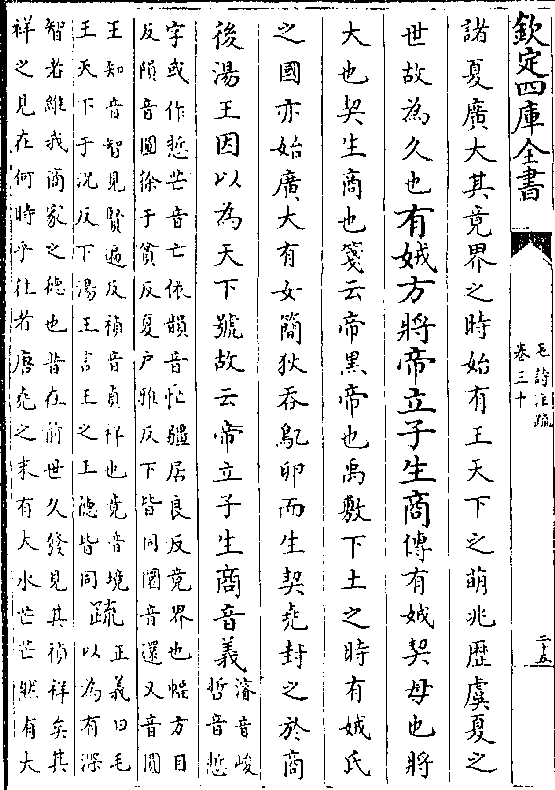 欽定四庫全書
毛詩注疏
卷三十
二十五
諸夏廣大其竟界之時始有王天下之萌兆歴虞夏之
世故為久也有娀方將帝立子生商傳有娀契母也將
大也契生商也箋云帝黒帝也禹敷下土之時有娀氏
之國亦始廣大有女簡狄吞鳦卵而生契堯封之於商
後湯王因以為天下號故云帝立子生商音義濬音峻
哲音悊
字或作悊芒音亡依韻音忙疆居良反竟界也幅方目
反隕音圓徐于貧反夏户雅反下皆同圜音還又音圓
王知音智見賢遍反禎音貞祥也竟音境
王天下于况反下湯王言王之王徳皆同疏正義曰毛
以為有深
智者維我商家之徳也昔在前世久發見其禎祥矣其
祥之見在何時乎往者唐堯之末有大水芒芒然有大